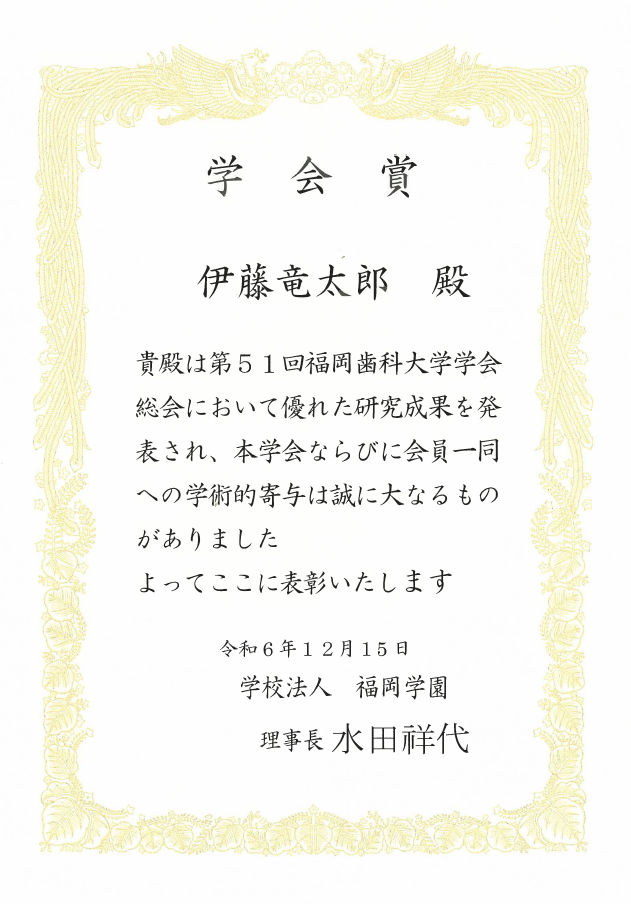 学　会　賞
伊藤竜太郎　殿
貴殿は第５１回福岡歯科大学学会
総会において優れた研究成果を発
表され、本学会ならびに会員一同
への学術的寄与は誠に大なるもの
がありました
よってここに表彰いたします
令和６年１２月１５日
学校法人　福岡学園
理事長 水田祥代